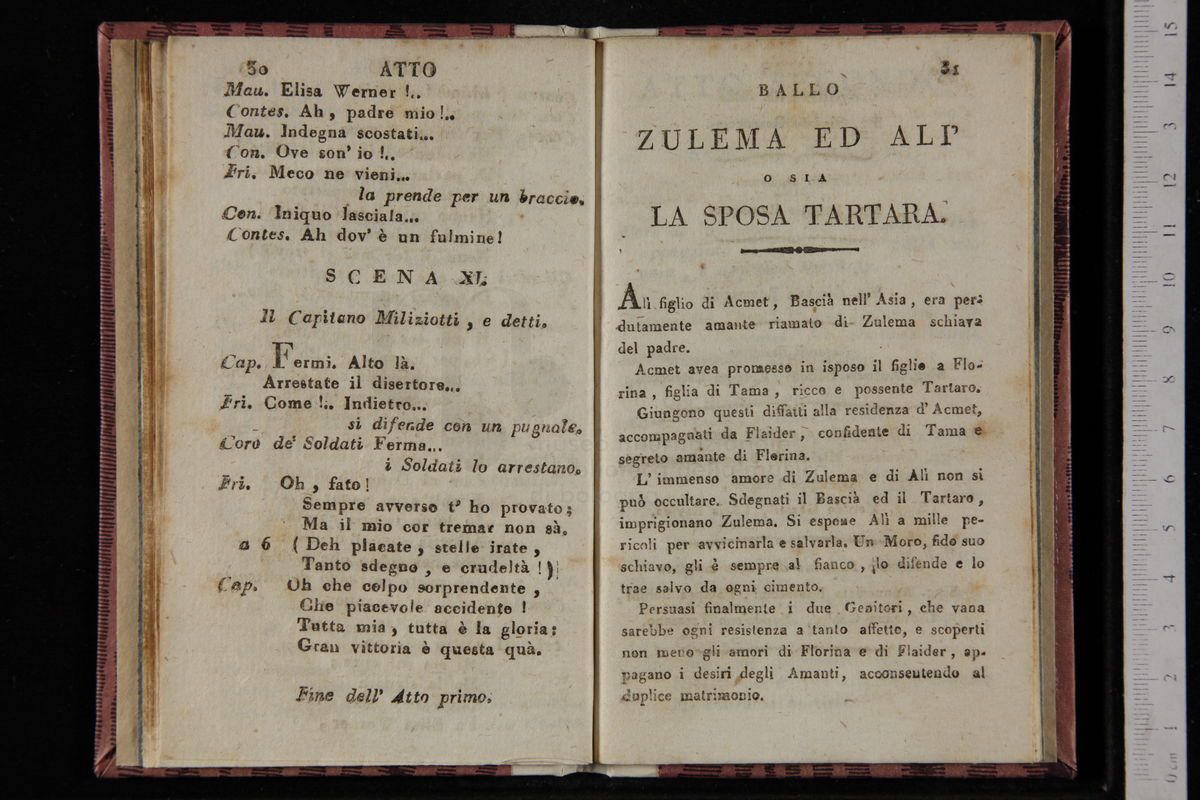 30 ATTO
Mau. Elisa Werner !..
Contes. Ah, padre mio!..
Mau. Indegna scostati...
Con. Ove son' io !..
Fri. Meco ne vieni...
la prende per un braccio.
Con. Iniquo lasciala...
Contes. Ah dov' è un fulmine!
SCENA XI.
Il Capitano Miliziotti, e detti.
Cap. Fermi. Alto là.
Arrestate il disertore...
Fri. Come !.. Indietro...
si difende con un pugnale.
Coro de' Soldati Ferma...
i Soldati lo arrestano.
Fri. Oh, fato!
Sempre avverso t' ho provato;
Ma il mio cor tremar non sà.
a 6 (Deh placate, stelle irate,
Tanto sdegno, e crudeltà!)
Cap. Oh che colpo sorprendente,
Che piacevole accidente!
Tutta mia, tutta è la gloria:
Gran vittoria è questa quà.
Fine dell' Atto primo.
31
BALLO
ZULEMA ED ALI'
O SIA
LA SPOSA TARTARA.
Alì figlio di Acmet, Bascià nell' Asia, era per-
dutamente amante riamato di Zulema schiava
del padre.
Acmet avea promesso in isposo il figlio a Flo-
rina, figlia di Tama, ricco e possente Tartaro.
Giungono questi diffatti alla residenza d' Acmet,
accompagnati da Flaider, confidente di Tama e
segreto amante di Florina.
L' immenso amore di Zulema e di Alì non si
può occultare. Sdegnati il Bascià ed il Tartaro,
imprigionano Zulema. Si espone Alì a mille pe-
ricoli per avvicinarla e salvarla. Un Moro, fido suo
schiavo, gli è sempre al fianco, lo difende e lo
trae salvo da ogni cimento.
Persuasi finalmente i due Genitori, che vana
sarebbe ogni resistenza a tanto affetto, e scoperti
non meno gli amori di Florina e di Flaider, ap-
pagano i desiri degli Amanti, acconsentendo al
duplice matrimonio.
0 cm 1 2 3 4 5 6 7 8 9 10 11 12 13 14 15